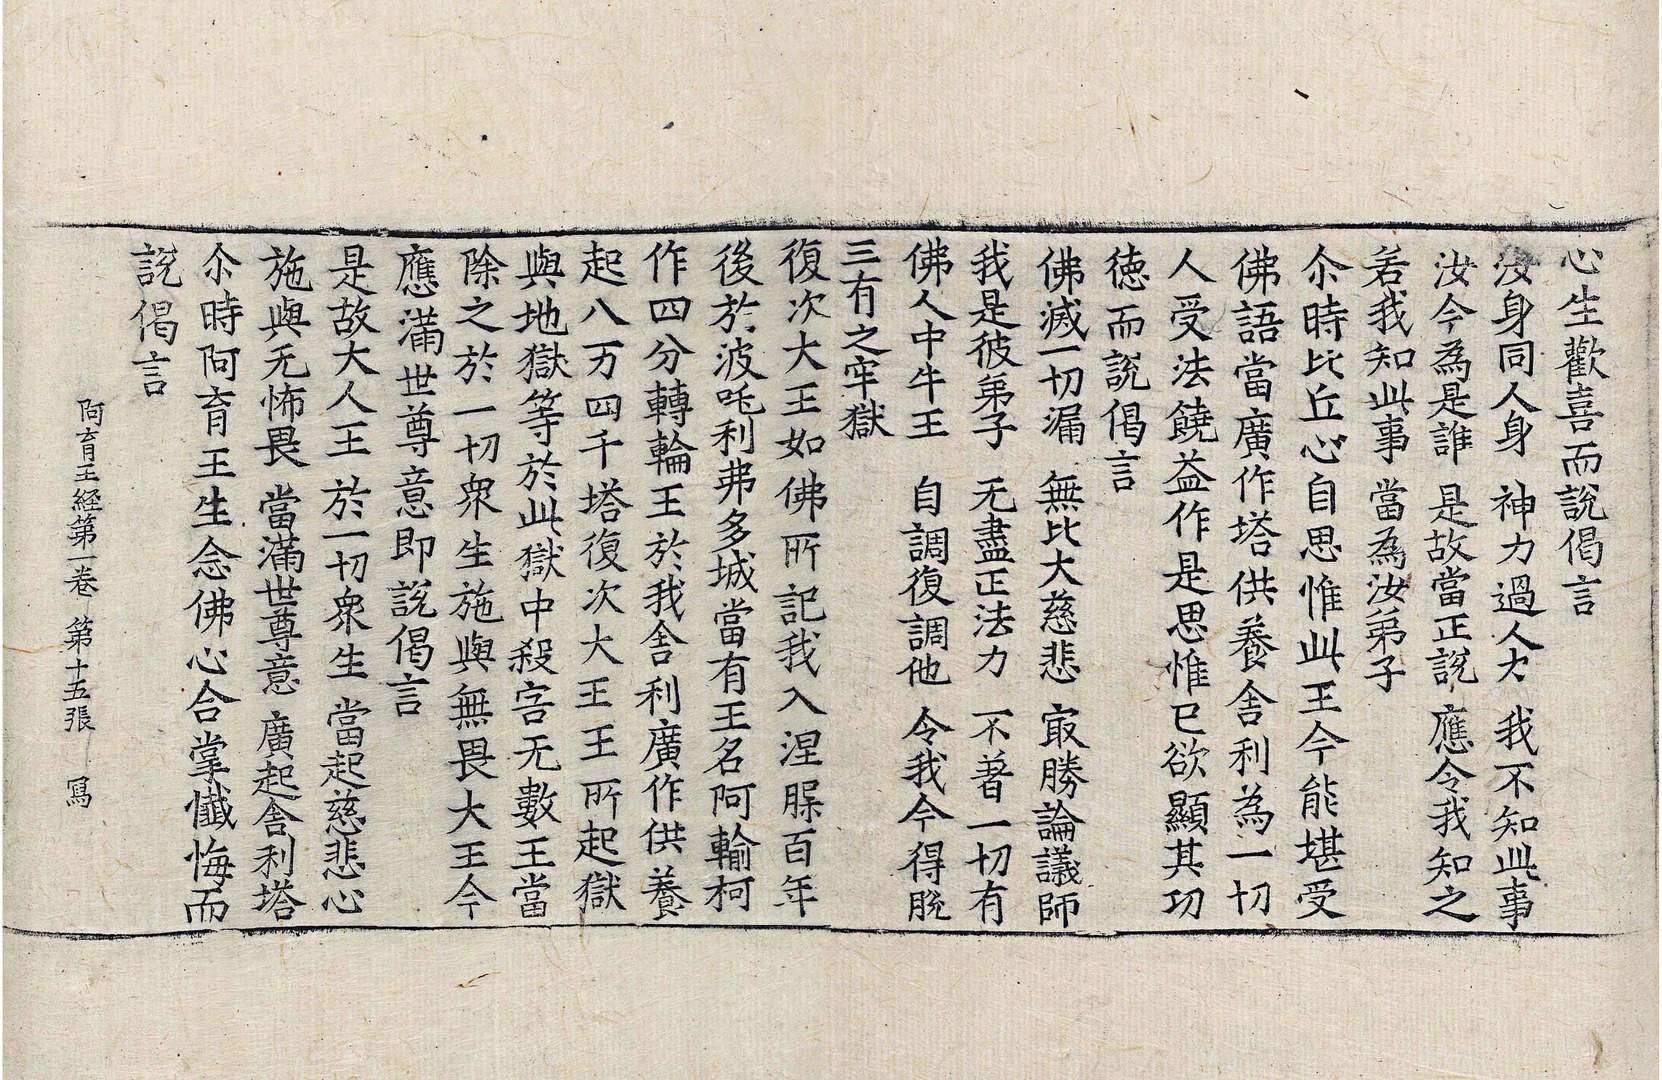 心生歡喜而說偈言
汝身同人身 神力過人大 我不知此事
汝今為是誰 是故當正說 應令我知之
若我知此事 當為汝弟子
尒時比丘心自思惟此王今能堪受
佛語當廣作塔供養舍利為一切
人受法饒益作是思惟已欲顯其功
徳而說偈言
佛滅一切漏 無比大慈悲 㝡勝論議師
我是彼弟子 无盡正法力 不著一切有
佛人中牛王 自調復調他 令我今得脫
三有之牢獄
復次大王如佛所記我入涅槃百年
後於波吒利弗多城當有王名阿輸柯
作四分轉輪王於我舍利廣作供養
起八万四千塔復次大王王所起獄
與地獄等於此獄中殺害无數王當
除之於一切衆生施與無畏大王今
應滿世尊意即說偈言
是故大人王 於一切衆生 當起慈悲心
施與无怖畏 當滿世尊意 廣起舍利塔
尒時阿育王生念佛心合掌懺悔而
說偈言
阿育王経第一卷 第十五張 寫